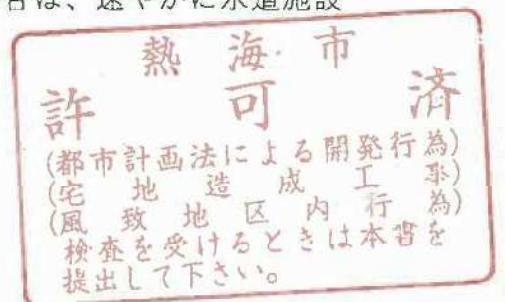 合は、速やかに水道施設
熱海市
許可済
(都市計画法による開発行為)
(宅地造成工事)
(風致地区内行為)
検査を受けるときは本書を
提出して下さい。